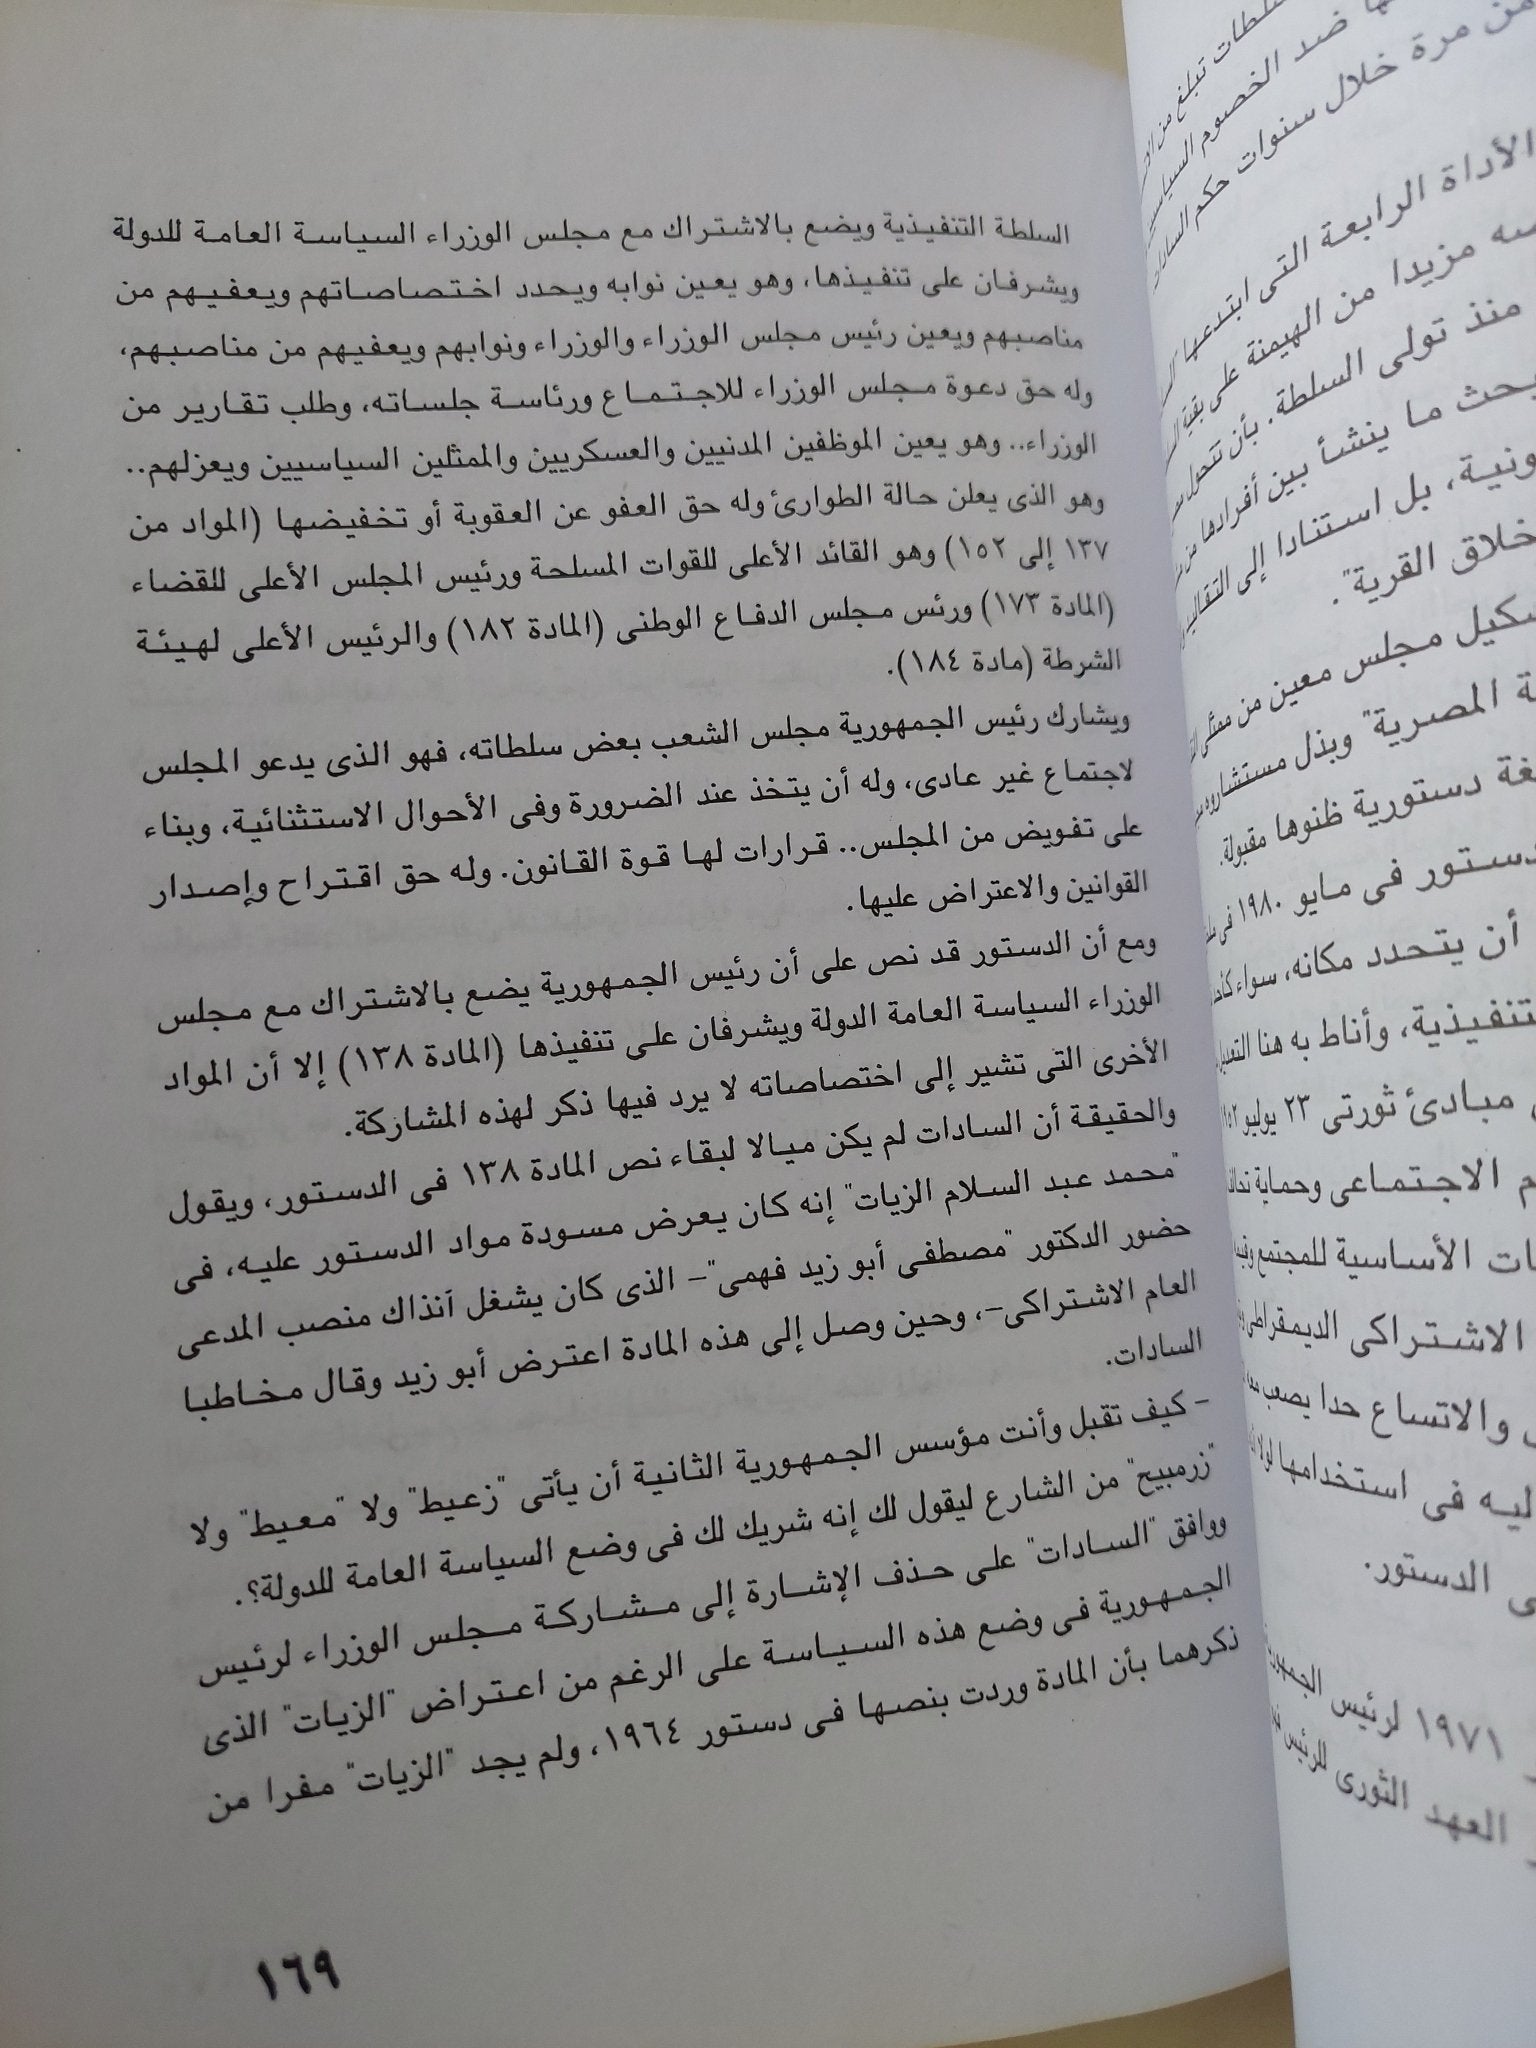 السلطة التنفيذية ويضع بالاشتراك مع مجلس الوزراء السياسة العامة للدولة
ويشرفان على تنفيذها، وهو يعين نوابه ويحدد اختصاصاتهم ويعفيهم من
مناصبهم ويعين رئيس مجلس الوزراء والوزراء ونوابهم ويعفيهم من مناصبهم،
وله حق دعوة مجلس الوزراء للاجتماع ورئاسة جلساته، وطلب تقارير من
الوزراء.. وهو يعين الموظفين المدنيين والعسكريين والممثلين السياسيين ويعزلهم..
وهو الذى يعلن حالة الطوارئ وله حق العفو عن العقوبة أو تخفيضها (المواد من
١٣٧ إلى ١٥٢) وهو القائد الأعلى للقوات المسلحة ورئيس المجلس الأعلى للقضاء
(المادة ١٧٣) ورئس مجلس الدفاع الوطنى (المادة ١٨٢) والرئيس الأعلى لهيئة
الشرطة (مادة ١٨٤).
ويشارك رئيس الجمهورية مجلس الشعب بعض سلطاته، فهو الذى يدعو المجلس
لاجتماع غير عادى، وله أن يتخذ عند الضرورة وفى الأحوال الاستثنائية، وبناء
على تفويض من المجلس.. قرارات لها قوة القانون. وله حق اقتراح وإصدار
القوانين والاعتراض عليها.
ومع أن الدستور قد نص على أن رئيس الجمهورية يضع بالاشتراك مع مجلس
الوزراء السياسة العامة الدولة ويشرفان على تنفيذها (المادة ١٣٨) إلا أن المواد
الأخرى التى تشير إلى اختصاصاته لا يرد فيها ذكر لهذه المشاركة.
والحقيقة أن السادات لم يكن ميالا لبقاء نص المادة ١٣٨ فى الدستور، ويقول
"محمد عبد السلام الزيات" إنه كان يعرض مسودة مواد الدستور عليه، فى
حضور الدكتور "مصطفى أبو زيد فهمى"– الذى كان يشغل آنذاك منصب المدعى
العام الاشتراكى–، وحين وصل إلى هذه المادة اعترض أبو زيد وقال مخاطبا
السادات.
– كيف تقبل وأنت مؤسس الجمهورية الثانية أن يأتى "زعيط" ولا "معيط" ولا
"زرمبيح" من الشارع ليقول لك إنه شريك لك فى وضع السياسة العامة للدولة؟.
ووافق "السادات" على حذف الإشارة إلى مشاركة مجلس الوزراء لرئيس
الجمهورية فى وضع هذه السياسة على الرغم من اعتراض "الزيات" الذى
ذكرهما بأن المادة وردت بنصها فى دستور ١٩٦٤، ولم يجد "الزيات" مفرا من
١٦٩
تبلغ من
ضد الخصوم
من مرة خلال سنوات حكم السادات
الأداة الرابعة التى ابتدعها
مزيدا من الهيمنة على بقية
منذ تولى السلطة. بأن تتحول
ما ينشأ بين أفرادها من
بل استنادا إلى التقاليد
القرية".
مجلس معين من ممثلى
المصرية" وبذل مستشاروه
دستورية ظنوها مقبولة.
فى مايو ١٩٨٠ فى
أن يتحدد مكانه، سواء
وأناط به هنا التعديل
مبادئ ثورتى ٢٣ يوليو
الاجتماعى وحماية
الأساسية للمجتمع
الاشتراكى الديمقراطى
والاتساع حدا يصعب معه
فى استخدامها لولا
الدستور.
١٩٧١ لرئيس
العهد الثورى للرئيس